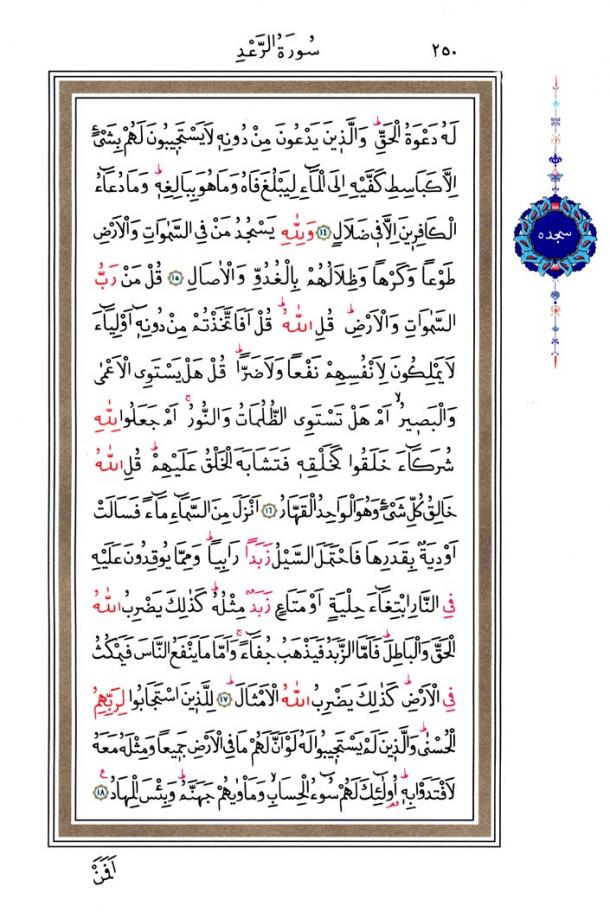 ٢٥٠
سُورَةُ الرَّعْدِ
لَهُ دَعْوَةُ الْحَقِّۜ وَالَّذ۪ينَ يَدْعُونَ مِنْ دُونِه۪ لَا يَسْتَج۪يبُونَ لَهُمْ بِشَيْءٍ
اِلَّا كَبَاسِطِ كَفَّيْهِ اِلَى الْمَٓاءِ لِيَبْلُغَ فَاهُ وَمَا هُوَ بِبَالِغِه۪ۜ وَمَا دُعَٓاءُ
الْكَافِر۪ينَ اِلَّا ف۪ي ضَلَالٍ ﴿١٤﴾ وَلِلّٰهِ يَسْجُدُ مَنْ فِي السَّمٰوَاتِ وَالْاَرْضِ
طَوْعًا وَكَرْهًا وَظِلَالُهُمْ بِالْغُدُوِّ وَالْاٰصَالِ ﴿١٥﴾ قُلْ مَنْ رَبُّ
السَّمٰوَاتِ وَالْاَرْضِۜ قُلِ اللّٰهُۜ قُلْ اَفَاتَّخَذْتُمْ مِنْ دُونِه۪ٓ اَوْلِيَٓاءَ
لَا يَمْلِكُونَ لِاَنْفُسِهِمْ نَفْعًا وَلَا ضَرًّاۜ قُلْ هَلْ يَسْتَوِي الْاَعْمٰى
وَالْبَص۪يرُۙ اَمْ هَلْ تَسْتَوِي الظُّلُمَاتُ وَالنُّورُۚ اَمْ جَعَلُوا لِلّٰهِ
شُرَكَٓاءَ خَلَقُوا كَخَلْقِه۪ فَتَشَابَهَ الْخَلْقُ عَلَيْهِمْۜ قُلِ اللّٰهُ
خَالِقُ كُلِّ شَيْءٍ وَهُوَ الْوَاحِدُ الْقَهَّارُ ﴿١٦﴾ اَنْزَلَ مِنَ السَّمَٓاءِ مَٓاءً فَسَالَتْ
اَوْدِيَةٌ بِقَدَرِهَا فَاحْتَمَلَ السَّيْلُ زَبَدًا رَابِيًاۜ وَمِمَّا يُوقِدُونَ عَلَيْهِ
فِي النَّارِ ابْتِغَٓاءَ حِلْيَةٍ اَوْ مَتَاعٍ زَبَدٌ مِثْلُهُۜ كَذٰلِكَ يَضْرِبُ اللّٰهُ
الْحَقَّ وَالْبَاطِلَۜ فَاَمَّا الزَّبَدُ فَيَذْهَبُ جُفَٓاءًۚ وَاَمَّا مَا يَنْفَعُ النَّاسَ فَيَمْكُثُ
فِي الْاَرْضِۜ كَذٰلِكَ يَضْرِبُ اللّٰهُ الْاَمْثَالَۜ ﴿١٧﴾ لِلَّذ۪ينَ اسْتَجَابُوا لِرَبِّهِمُ
الْحُسْنٰىۜ وَالَّذ۪ينَ لَمْ يَسْتَج۪يبُوا لَهُ لَوْ اَنَّ لَهُمْ مَا فِي الْاَرْضِ جَم۪يعًا وَمِثْلَهُ مَعَهُ
لَافْتَدَوْا بِه۪ۜ اُو۬لٰٓئِكَ لَهُمْ سُٓوءُ الْحِسَابِ وَمَأْوٰيهُمْ جَهَنَّمُۜ وَبِئْسَ الْمِهَادُ۟ ﴿١٨﴾
اَفَمَنْ
سجده